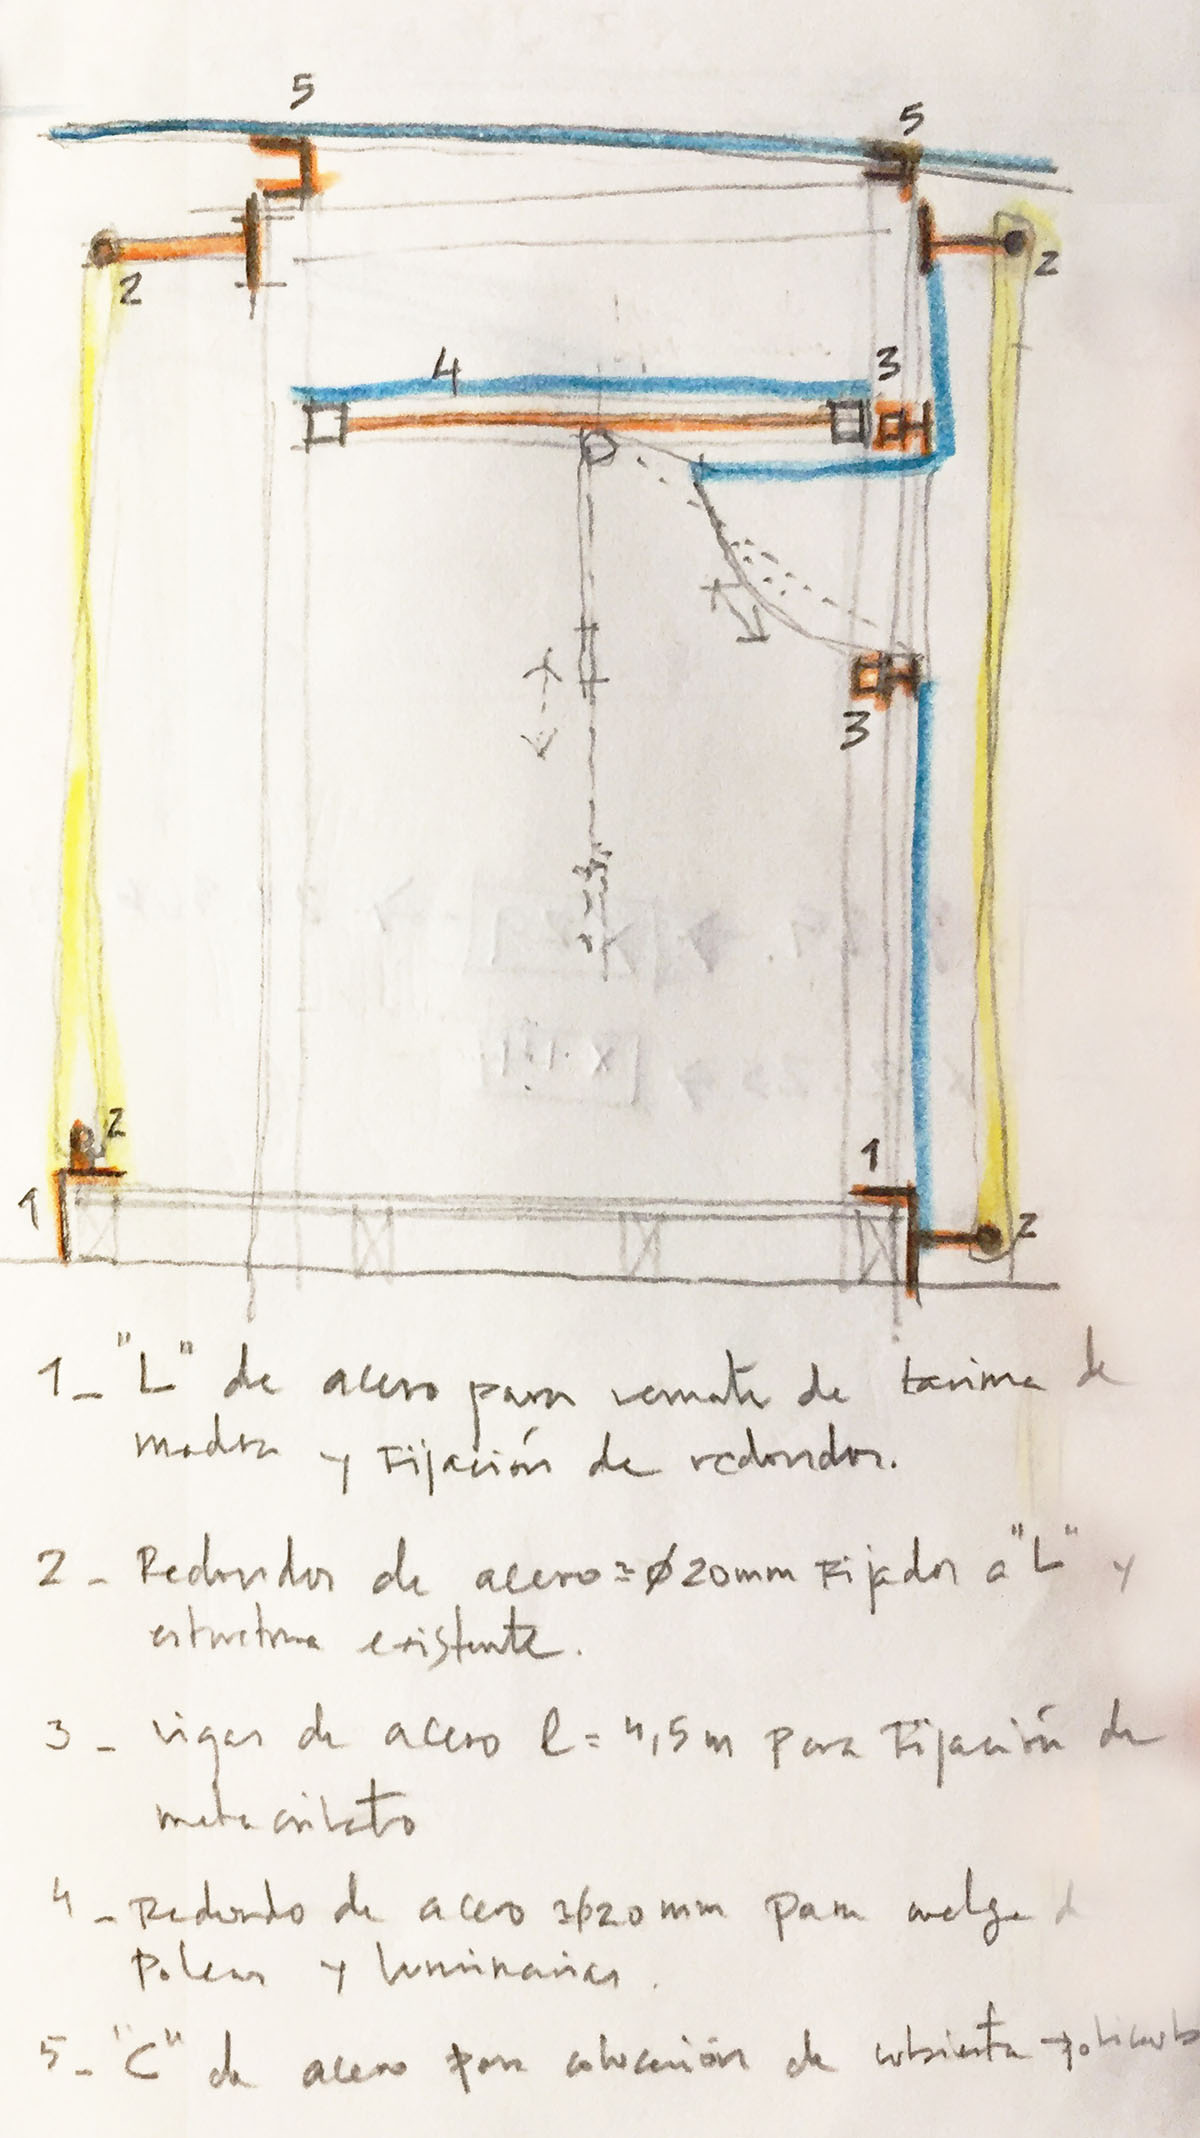 5
5
2
2
4
3
3
2
1
1
2
1- "L" de acero para remate de tarima de
madera y Fijación de redondos.
2- Redondos de acero ≃ ø20mm Fijados a "L" y
estructura existente.
3- vigas de acero l = 4,5m para Fijación de
metacrilato
4- Redondo de acero ≃ ø20mm para cuelgue d
Poleas y luminarias.
5- "C" de acero para colocación de cubierta policarb